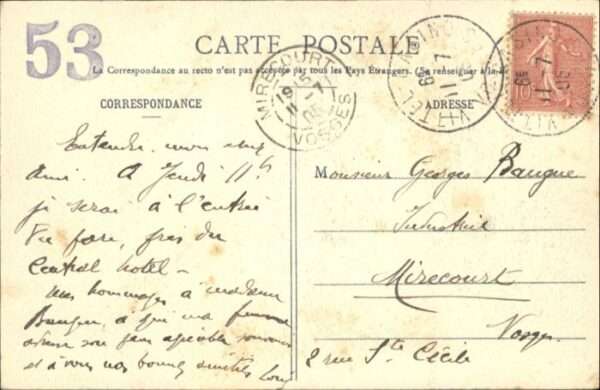 53
CARTE POSTALE
La Correspondance au recto n'est pas acceptée par tous les Pays Étrangers. (Se renseigner à la
CORRESPONDANCE
ADRESSE
MIRECOURT
11 -7
05
VOSGES
VITTEL
VOSGES
11 7
05
10
Entendu, mon cher
ami. A Jeudi 11h
je serai à l'entrée
du parc, près du
Central hotel –
mes hommages à madame
à qui ma femme
adresse son
et à vous mes bonnes amitiés
Monsieur Georges Baugue
Industriel
Mirecourt
Vosges
2 rue Ste Cécile